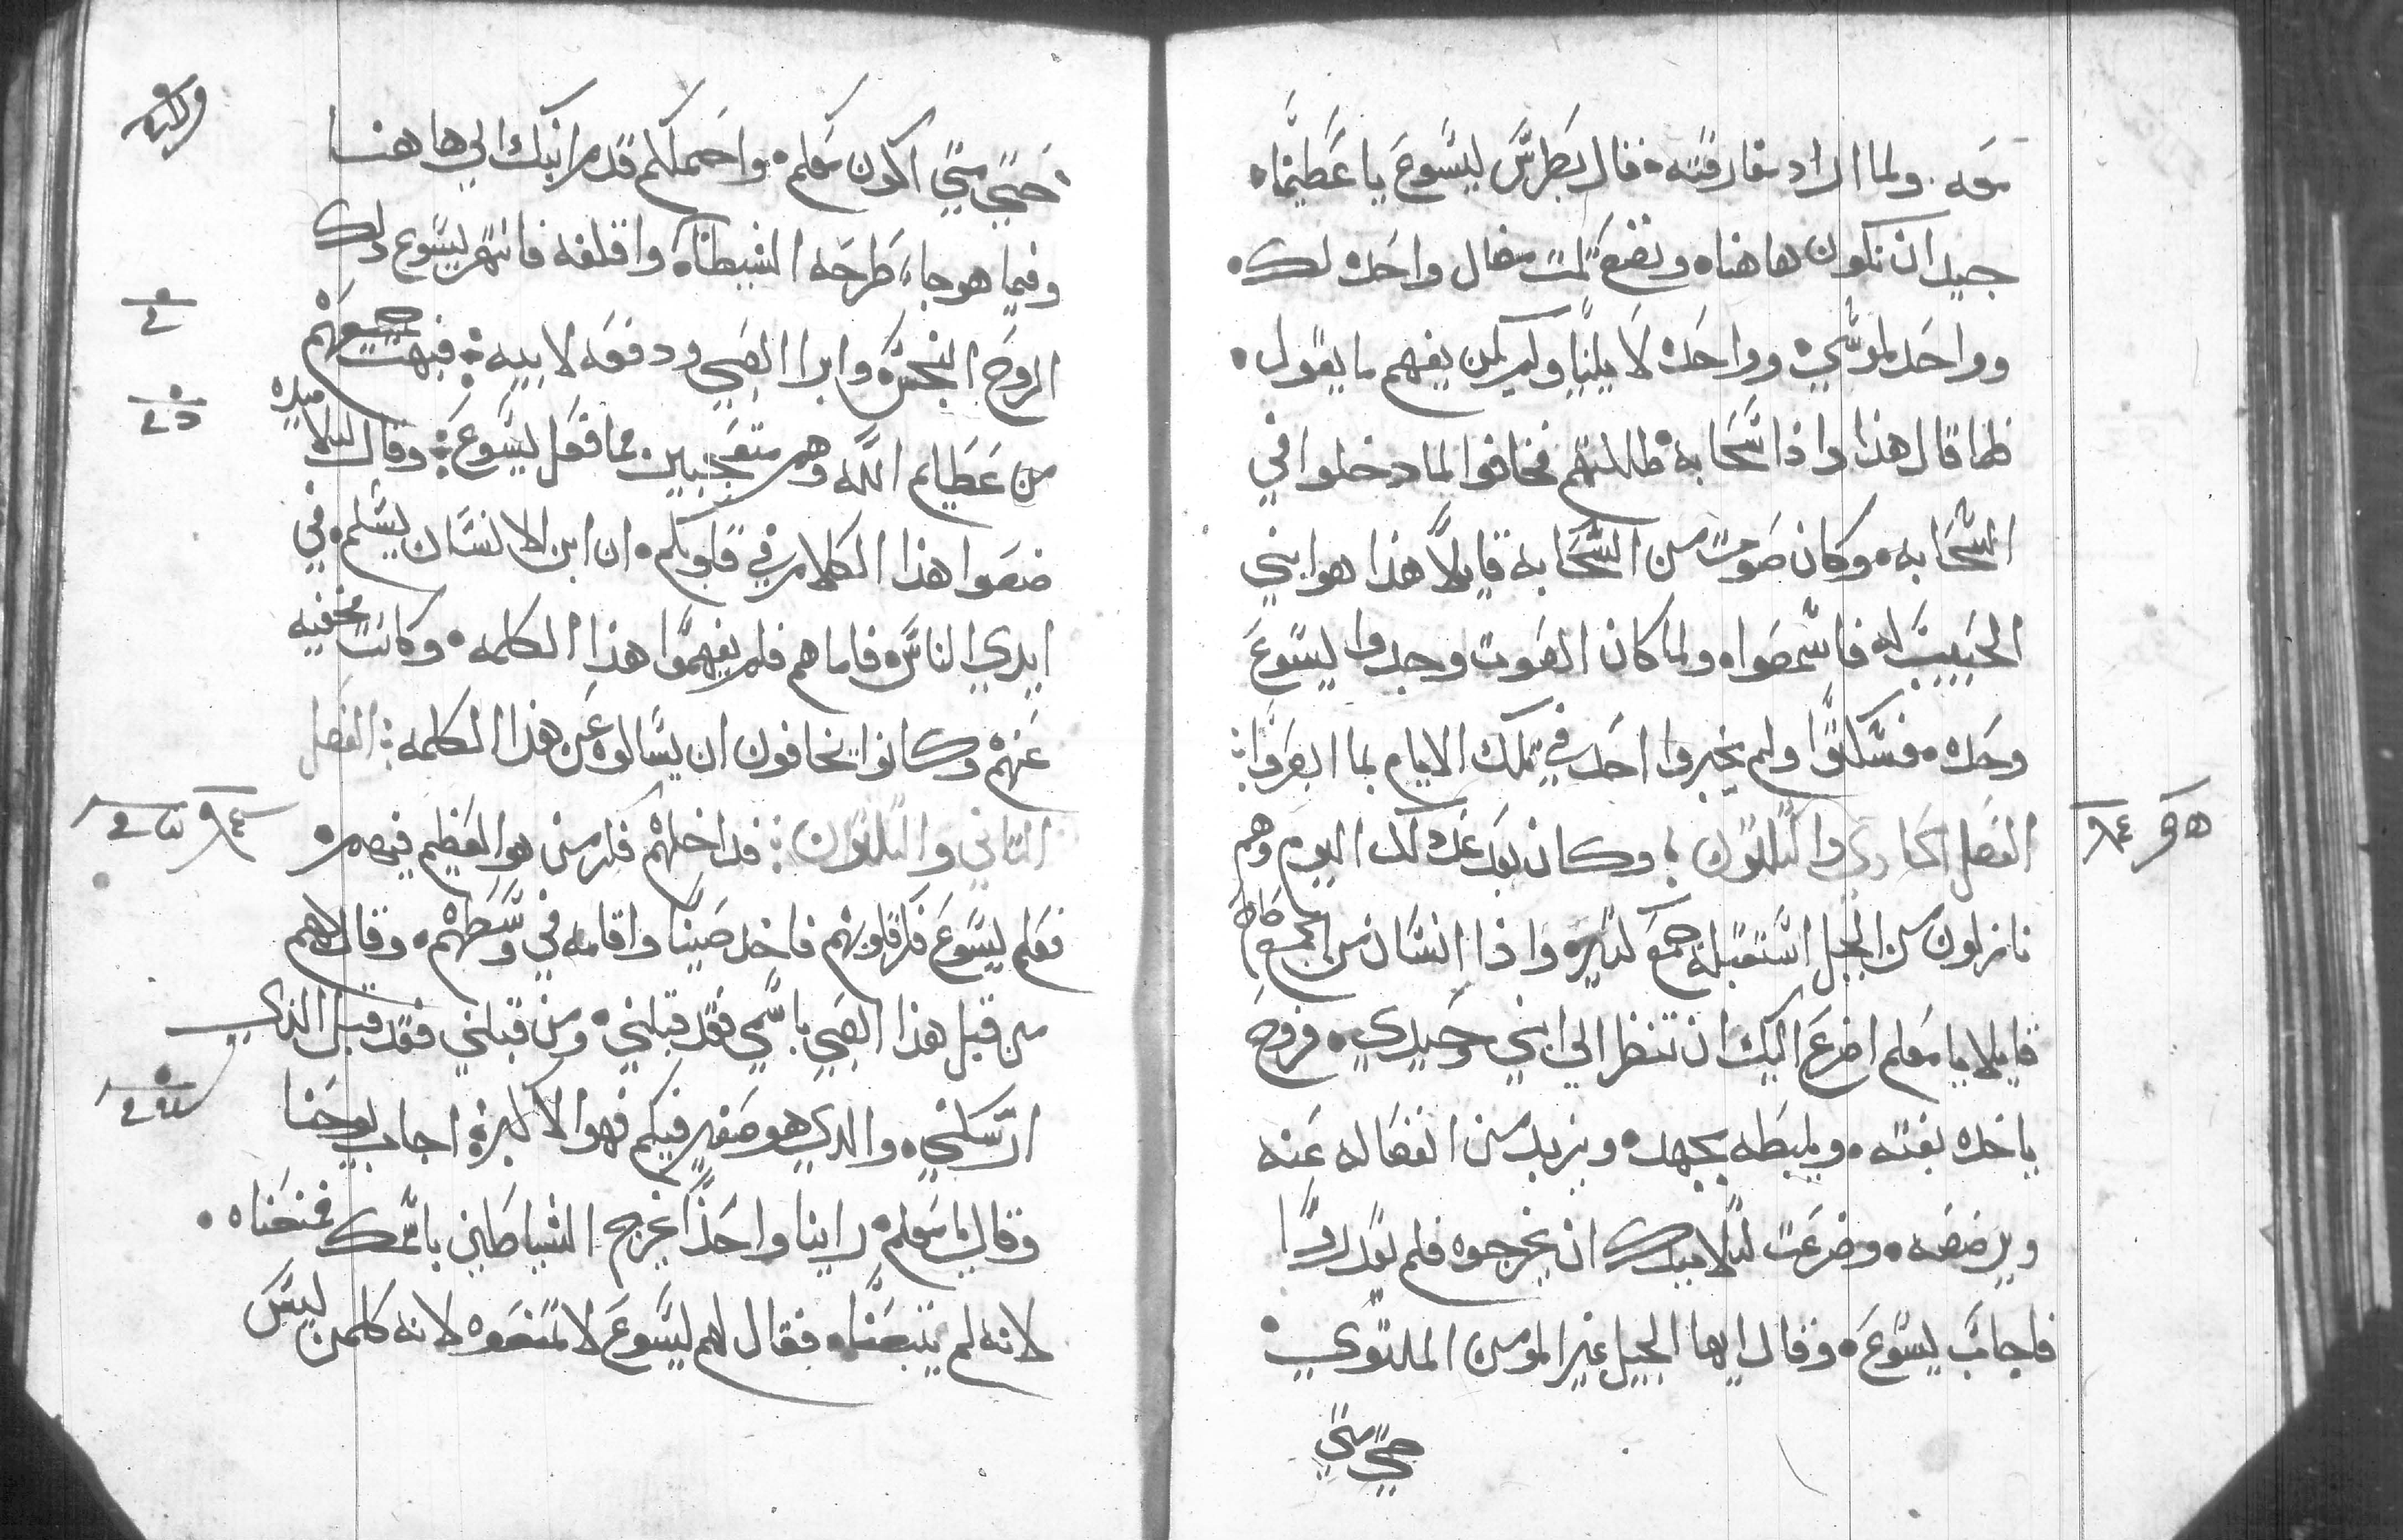 معه. ولما اراد مفارقته. قال بطرس ليسوع يا عظيماه
جيد ان نكون هاهناه ونضع تلت مضال واحده لك.
وواحده لموسي. وواحده لايليا ولم يكن يفهم ما يقول.
فلما قال هذا واذا سحابه ظللتهم فخافوا لما دخلوا في
السحابه. وكان صوت من السحابه قايلا هذا هو ابني
الحبيب له فاسمعواه ولما كان الصوت وجدوا ليسوع
وحده. فسكتوا ولم يخبروا احد في تلك الايام بما ابصروا:
الفصل الحادي والتلتون : وكان بعد غد لك اليوم وهم
نازلون من الجبل استقبله جمع كتيره واذا انسان من الجمع صاح
قايلا يا معلم اضرع اليك ان تنظر الي ابني وحيدي. فروح
ياخده بغته. ويلبطه بجهد. ويزبد من انفصاله عنه
ويرضضه. وضرعت لتلاميدك ان يخرجوه فلم يقدروا
فاجاب يسوع. وقال ايها الجيل غير المومن الملتوي.
حتي متي
وكتبه
حتي متي اكون معكم. واحتملكم قدم ابنك الي هاهنا
وفيما هو جا طرحه الشيطان واقلقه فانتهر ليسوع دلك
الروح النجس. وابرا الصبي ودفعه لابيه: فبهت جميعهم
من عظايم الله وهم متعجبين مما فعل ليسوع: وقال لتلاميده
ضعوا هذا الكلام في قلوبكم. ان ابن الانسان يسلم. في
ايدي الناس. فاما هم فلم يفهموا هذا الكلمه. وكانت مخفيه
عنهم وكانوا يخافون ان يسالوه عن هذا الكلمه: الفصل
التاني والتلتون: فداخلهم فكر من هو العظيم فيهم.
فعلم ليسوع فكر قلوبهم فاخد صبيا واقامه في وسطهم. وقال لهم
من قبل هذا الصبي باسمي فقد قبلني. ومن قبلني فقد قبل الذي
ارسلني. والدي هو صغير فيكم فهو الاكبر: اجاب يوحنا
وقال يا معلم. راينا واحدا يخرج الشياطين باسمك فمنعناه.
لانه لم يتبعنا. فقال لهم ليسوع لا تمنعوه لانه كلمن ليس